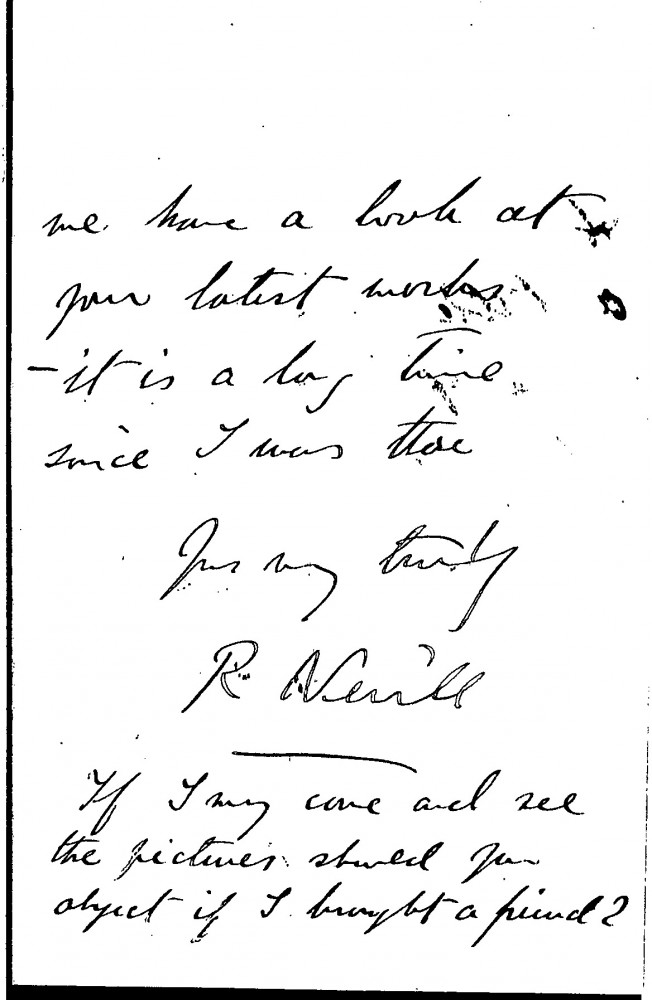 me have a look at
your latest works
- it is a long time
since I was there
Yrs very truly
R Nevill
If I may come and see
the pictures should you
object if I brought a friend?